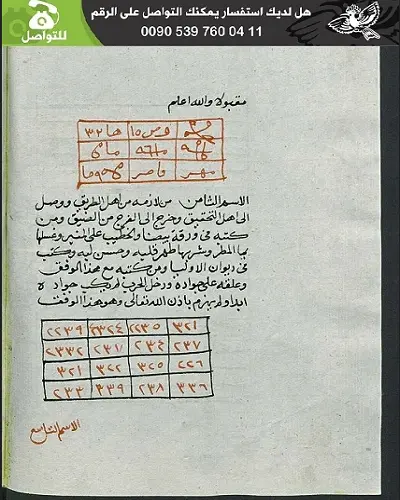 هل لديك استفسار يمكنك التواصل على الرقم
0090 539 760 04 11
للتواصل
مقبولا والله اعلم
وس ١٥ هـا ٣٢
مهر قاصر
الاسم الثامن من لازمه من اهل الطريق ووصل
الى اهل التحقيق وخرج الى الفرج من الضيق ومن
كتبه في ورقة بيضا والخطيب على المنبر وغسلها
بما المطر وشربها طهر قلبه وحسن لبه وكتب
في ديوان الاوليا ومن كتبه مع هذا الوفق
وعلقه على جواده ودخل الحرب لم يكب جواده
ابدا ولم يهزم باذن الله تعالى وهو هذا الوفق
٣٢١ ٢٢٣٥ ٢٣٢٤ ٢٢٣٩
٢٣٧ ٢٣٤ ٢٣١ ٢٣٣٢
٢٢٦ ٣٢٥ ٣٢٢ ٣٢١
٣٣٦ ٢٣٨ ٣٣٩ ٢٣٣
الاسم التاسع